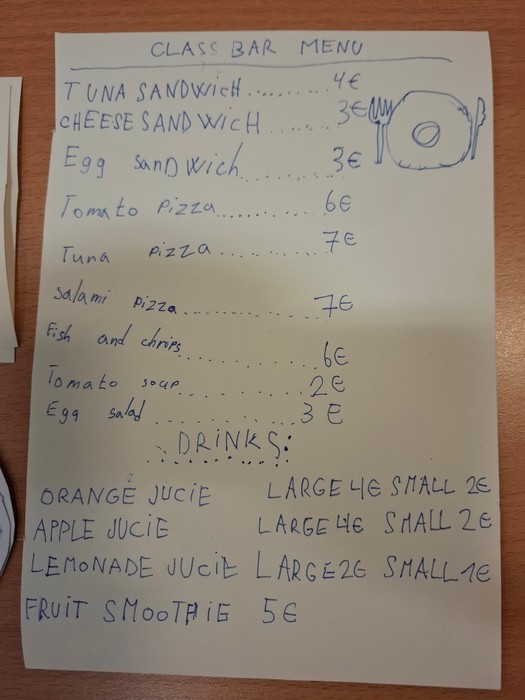 CLASS BAR MENU
TUNA SANDWICH.......... 4€
CHEESE SANDWICH ....... 3€
Egg sanDwich......... 3€
Tomato pizza......... 6€
Tuna pizza.......... 7€
salami pizza............ 7€
Fish and chrips............ 6€
Tomato soup.......... 2€
Egg salad .......... 3 €
DRiNKS:
ORANGE JUCIE LARGE 4€ SMALL 2€
APPLE JUCIE LARGE 4€ SMALL 2€
LEMONADE JUCIE LARGE 2€ SMALL 1€
FRUIT SMOOTHIE 5€